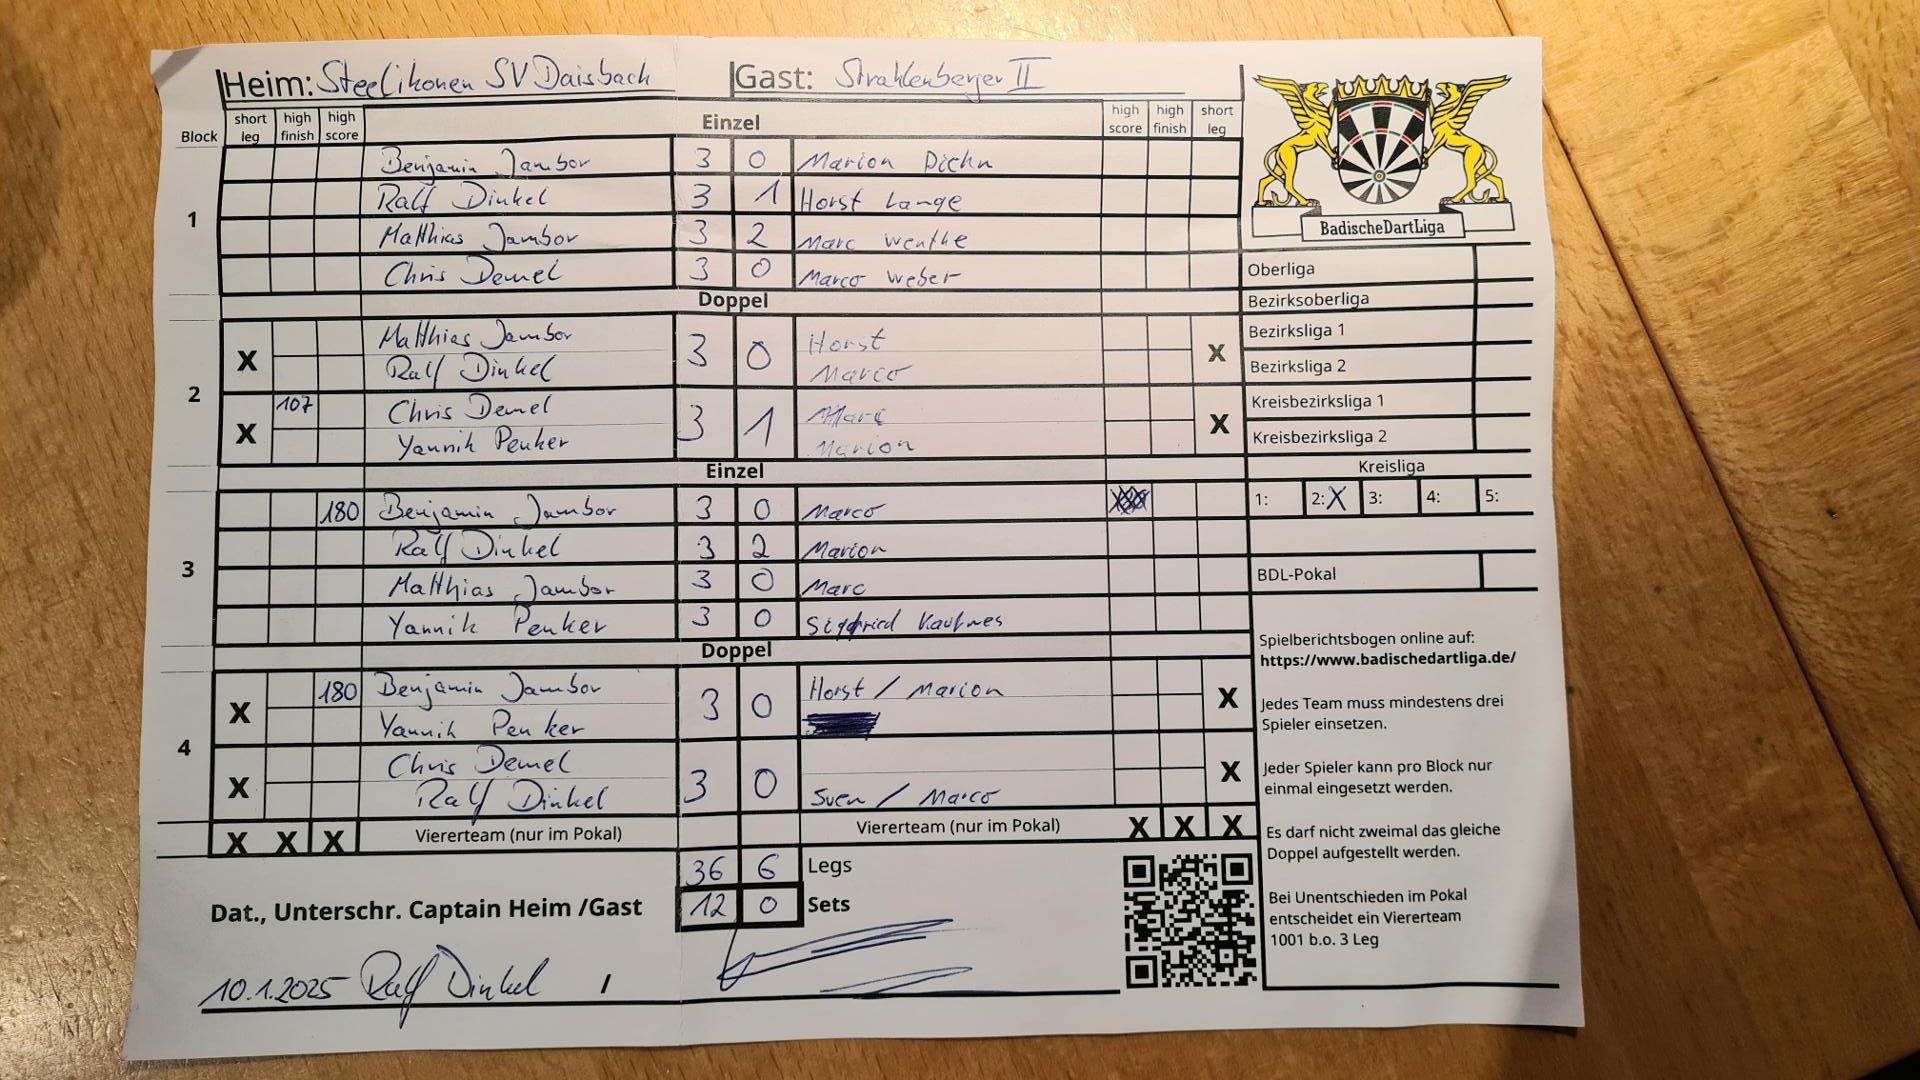 Heim: Steelikonen SV Daisbach Gast: Strahlenberger II
Block short leg high finish high score Einzel high score high finish short leg
1
Benjamin Jambor 3 0 Marion Diehn
Ralf Dinkel 3 1 Horst Lange
Matthias Jambor 3 2 Marc Wenthe
Chris Demel 3 0 Marco Weber
Doppel
2
X Matthias Jambor 3 0 Horst X
Ralf Dinkel Marco
X 107 Chris Demel 3 1 Marc X
Yannik Penker Marion
Einzel
3
180 Benjamin Jambor 3 0 Marco
Ralf Dinkel 3 2 Marion
Matthias Jambor 3 0 Marc
Yannik Penker 3 0
Doppel
4
X 180 Benjamin Jambor 3 0 Horst / Marion X
Yannik Penker
X Chris Demel 3 0 X
Ralf Dinkel Sven / Marco
X X X Viererteam (nur im Pokal) Viererteam (nur im Pokal) X X X
36 6 Legs
12 0 Sets
Dat., Unterschr. Captain Heim /Gast
10.1.2025 Ralf Dinkel /
BadischeDartLiga
Oberliga
Bezirksoberliga
Bezirksliga 1
Bezirksliga 2
Kreisbezirksliga 1
Kreisbezirksliga 2
Kreisliga
1: 2: X 3: 4: 5:
BDL-Pokal
Spielberichtsbogen online auf:
https://www.badischedartliga.de/
Jedes Team muss mindestens drei
Spieler einsetzen.
Jeder Spieler kann pro Block nur
einmal eingesetzt werden.
Es darf nicht zweimal das gleiche
Doppel aufgestellt werden.
Bei Unentschieden im Pokal
entscheidet ein Viererteam
1001 b.o. 3 Leg